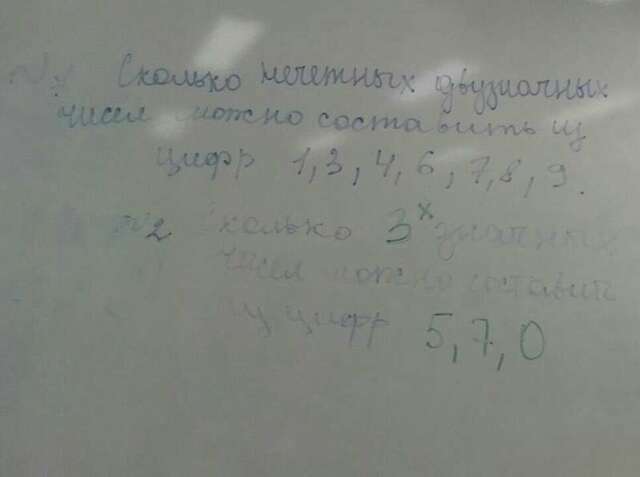 №1 Сколько нечетных двузначных
чисел можно составить из
цифр 1,3,4,6,7,8,9.
№2 Сколько 3х значных
чисел можно составить
из цифр 5,7,0